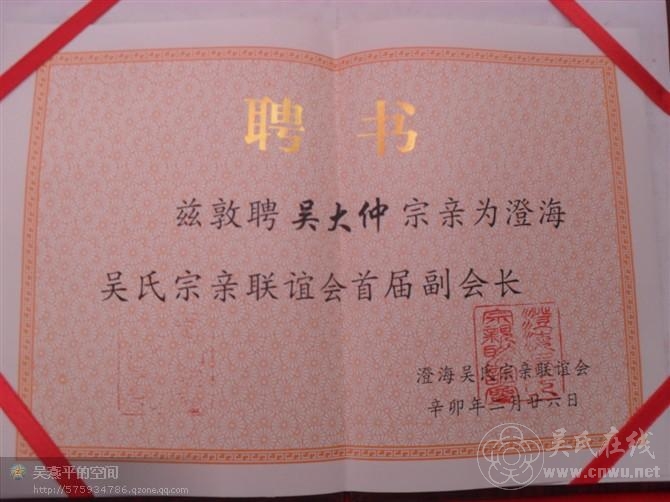 聘书
兹敦聘吴大仲宗亲为澄海
吴氏宗亲联谊会首届副会长
澄海吴氏宗亲联谊会
辛卯年二月廿六日
吴燕平的空间
http://575934786.qzone.qq.com
吴氏在线
www.cnwu.net